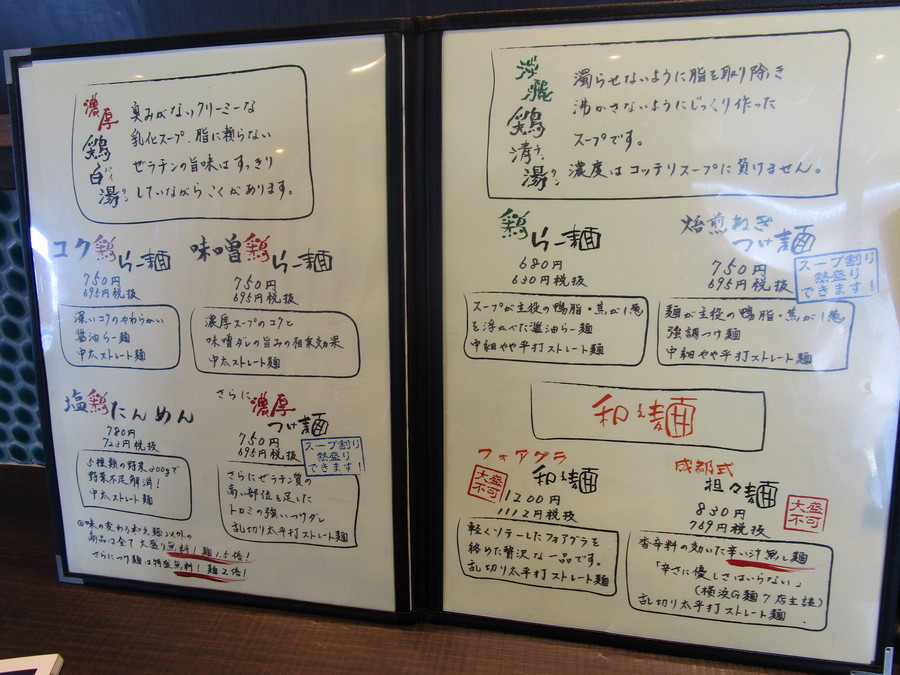 濃厚鶏白湯
臭みがないクリーミーな
乳化スープ、脂に頼らない
ゼラチンの旨味はすっきり
していながらこくがあります。
コク鶏らー麺
750円
695円税抜
深いコクのやわらかい
醤油らー麺
中太ストレート麺
味噌鶏らー麺
750円
695円税抜
濃厚スープのコクと
味噌ダレの旨みの相乗効果
中太ストレート麺
塩鶏たんめん
780円
円税抜
5種類の野菜200gで
野菜不足解消!
中太ストレート麺
さらに濃厚
つけ麺
750円
695円税抜
スープ割り
熱盛り
できます!
さらにゼラチン質の
高い部位を足した
トロミの強いつけダレ
乱切り太平打ストレート麺
◎味の変わる和え麺以外の
商品は全て大盛り無料!麺1.5倍!
さらにつけ麺は特盛無料!麺2倍!
淡麗
鶏清湯
濁らせないように脂を取り除き
沸かさないようにじっくり作った
スープです。
濃度はコッテリスープに負けません。
鶏らー麺
680円
630円税抜
スープが主役の鴨脂・焦がし葱
を浮かべた醤油らー麺
中細やや平打ストレート麺
焙煎ねぎ
つけ麺
750円
695円税抜
スープ割り
熱盛り
できます!
麺が主役の鴨脂・焦がし葱
強調つけ麺
中細やや平打ストレート麺
和え麺
フォアグラ
和え麺
大盛
不可
1200円
1112円税抜
軽くソテーしたフォアグラを
絡めた贅沢な一品です。
乱切り太平打ストレート麺
成都式
担々麺
大盛
不可
830円
769円税抜
香辛料の効いた辛い汁無し麺
「辛さに優しさはいらない」
(横浜G麺7店主談)
乱切り太平打ストレート麺